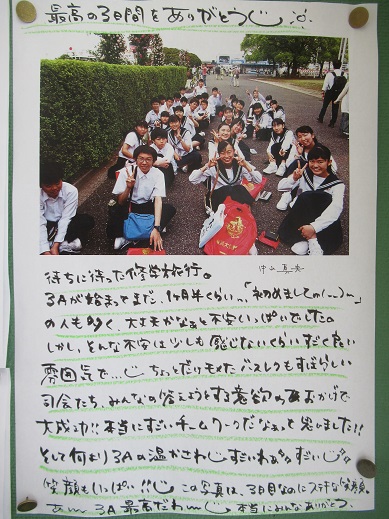 最高の3日間をありがとう
待ちに待った修学旅行。
3Aが始まってまだ、1ヶ月半くらい、、「初めまして(--)〜」
の人も多く、大丈夫かなぁと不安いっぱいでした。
しかし、そんな不安は少しも感じないくらいすごく良い
雰囲気で...ちょっとだけモメたバスレクもすばらしい
司会たち、みんなの答えようとする意欲のおかげで
大成功!!本当にすごいチームワークだなぁって思いました!!
そして何より3Aの温かさわすごいわぁすごい
笑顔もいっぱい!!この写真は、3日目なのにステキな笑顔。
あ〜 3A 最高だわ〜 本当にみんなありがとう。